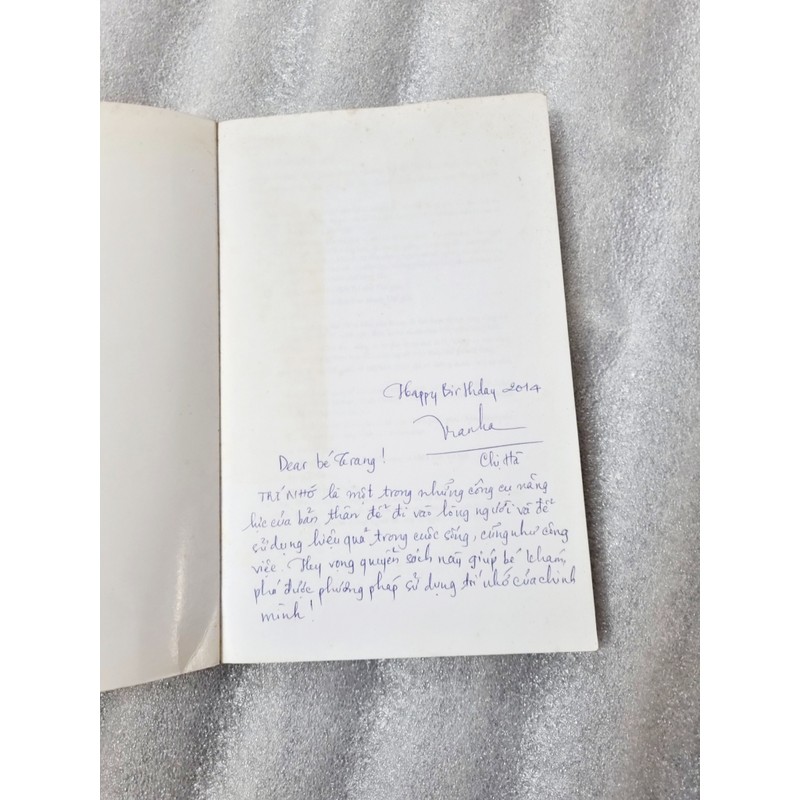 Happy Birthday 2014
Chị Hà
Dear bé Trang!
TRÍ NHỚ là một trong những công cụ năng
lực của bản thân để đi vào lòng người và để
sử dụng hiệu quả trong cuộc sống, cũng như công
việc. Hy vọng quyển sách này giúp bé khám
phá được phương pháp sử dụng trí nhớ của chính
mình!